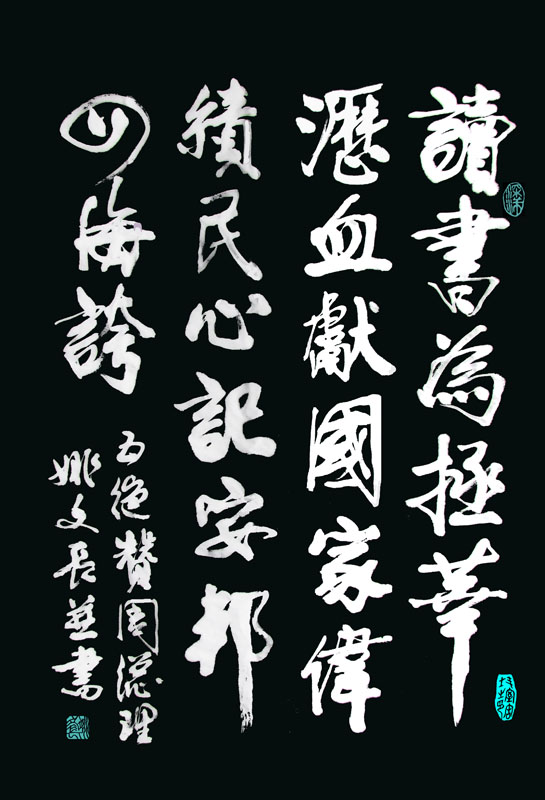 讀書為拯華
瀝血獻國家偉
績民心記安邦
四海誇
五絕贊周總理
姚文長並書